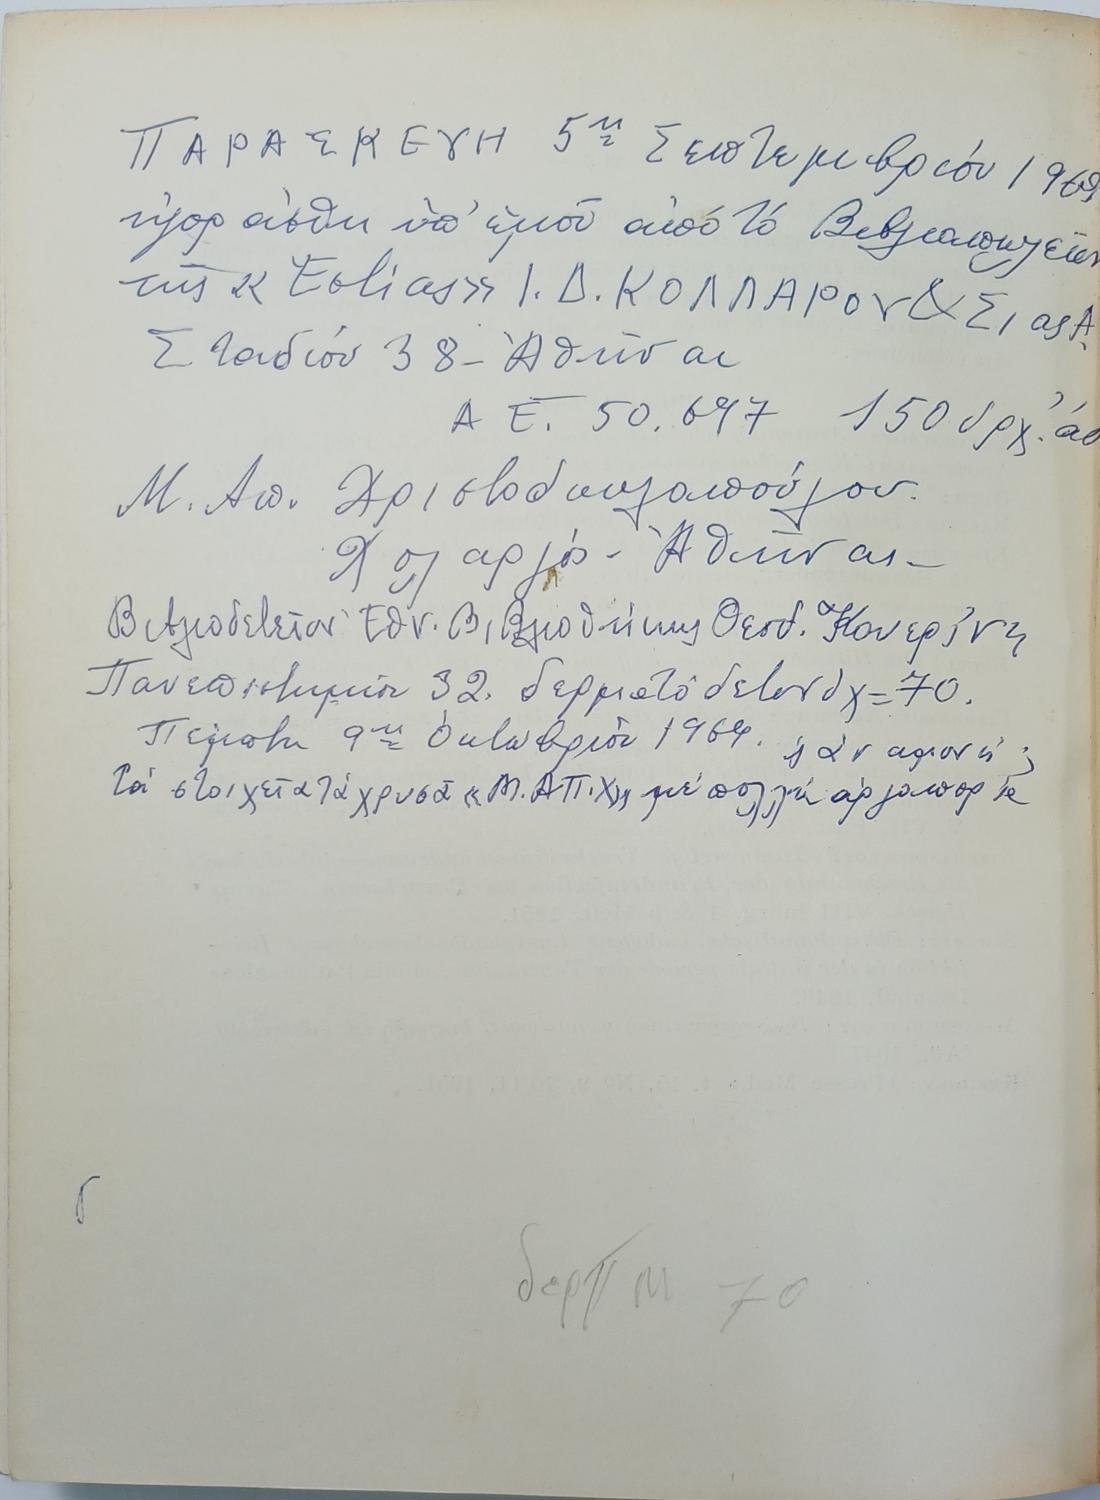 ΠΑΡΑΣΚΕΥΗ 5η Σεπτεμβρίου 1969
ἠγοράσθη ὑπ' ἐμοῦ ἀπό τό Βιβλιοπωλεῖον
τῆς «Ἑστίας» Ι. Δ. ΚΟΛΛΑΡΟΥ & Σίας Α.
Σταδίου 38 - Ἀθῆναι
Α Ε. 50.697 150 δρχ.
Μ. Απ. Χριστοδουλοπούλου.
Χολαργός - Ἀθῆναι -
Βιβλιοδετεῖον Ἐθν. Βιβλιοθήκης Θεοδ.
Πανεπιστημίου 32. δερματόδετον δχ = 70.
Πέμπτη 9η Ὀκτωβρίου 1969.
τά στοιχεῖα τά χρυσᾶ «Μ.ΑΠ.Χ» μέ πολλή ἀργοπορία
δερ Π Μ 70